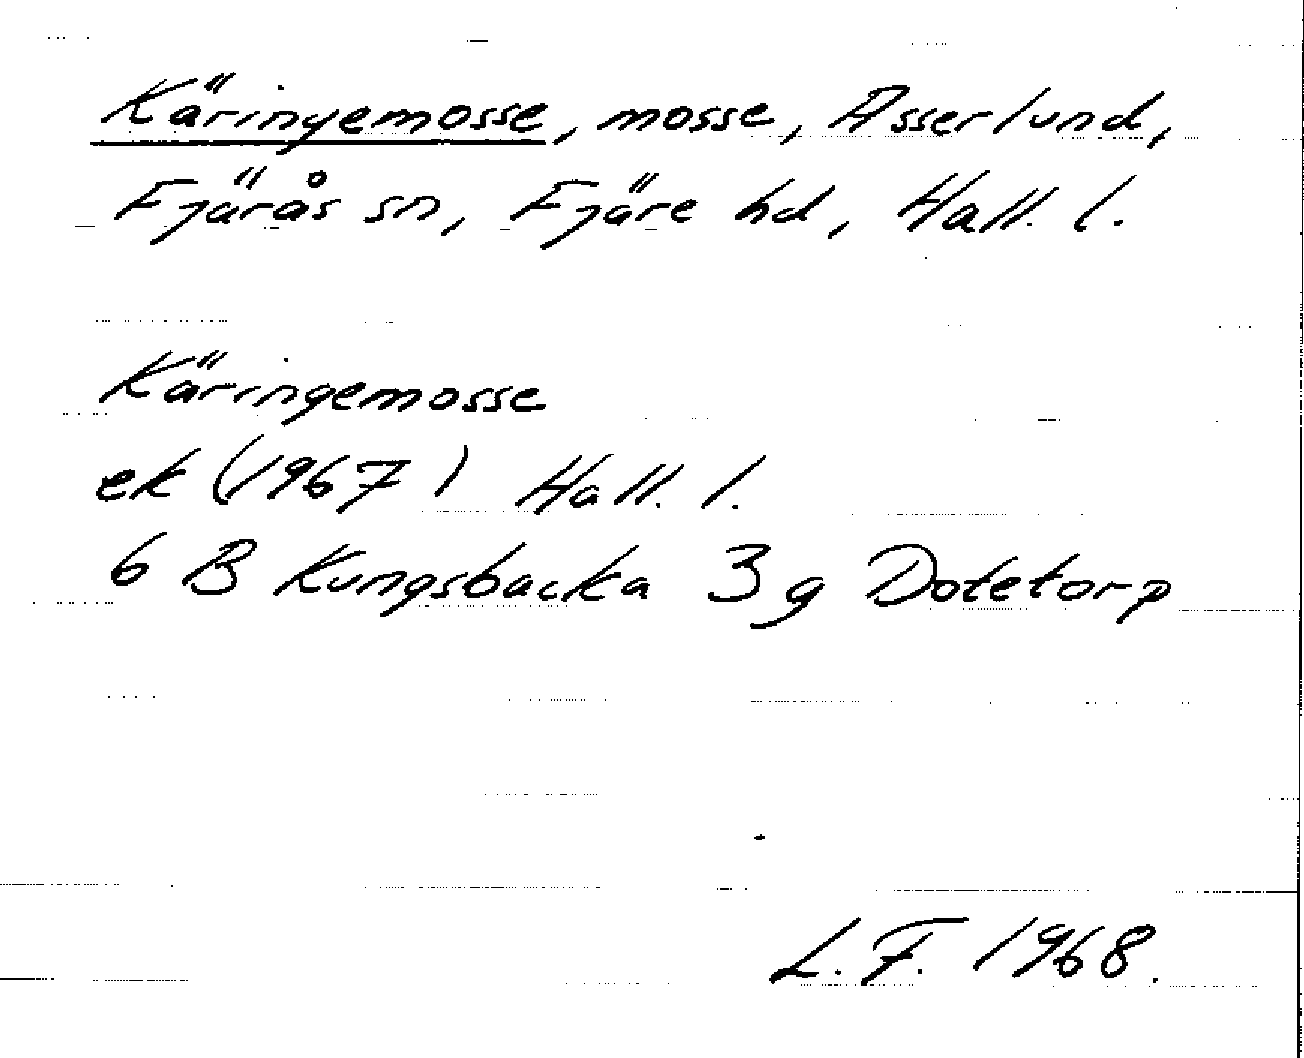 Käringemosse, mosse, Asserlund,
Fjärås sn, Fjäre hd, Hall. l.
Käringemosse
ek (1967) Hall. l.
6 B Kungsbacka 3 g Dotetorp
L. F. 1968.